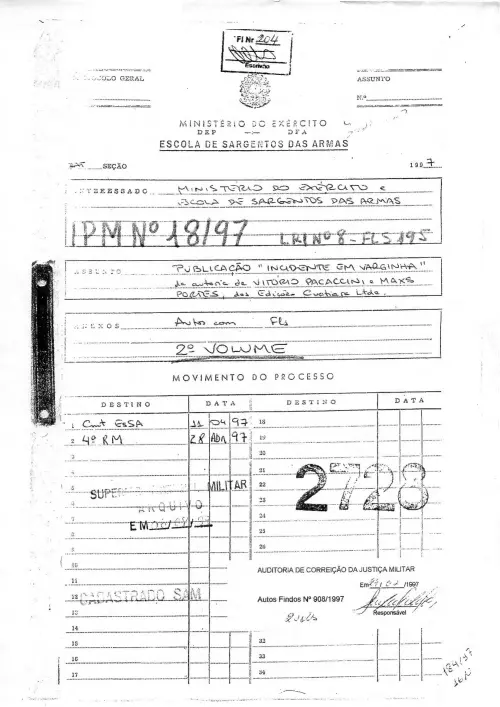 Fl Nr 204
Escrivão
PROTOCOLO GERAL
ASSUNTO
N.º
MINISTÉRIO DO EXÉRCITO
DEP — DFA
ESCOLA DE SARGENTOS DAS ARMAS
SEÇÃO
1997
INTERESSADO MINISTÉRIO DO EXÉRCITO e
ESCOLA DE SARGENTOS DAS ARMAS
IPM Nº 18/97 LRI Nº 8 - FLS 195
ASSUNTO PUBLICAÇÃO "INCIDENTE EM VARGINHA"
de autoria de VITÓRIO PACACCINI e MAXS
PORTES, das Edições Cuatiara Ltda.
ANEXOS Autos com Fls
2º VOLUME
MOVIMENTO DO PROCESSO
DESTINO DATA DESTINO DATA
1 Cmt EsSA 11 04 97 18
2 4ª RM 28 Abr 97 19
3 20
4 21
5 MILITAR 22
6 ARQUIVO 23
7 24
8 EM 25
9 26
2728
10
AUDITORIA DE CORREIÇÃO DA JUSTIÇA MILITAR
11
Em /1997
12 CADASTRADO SAM
Autos Findos Nº 908/1997
Responsável
13
2 vols
14
15 32
16 33
17 34
184/97